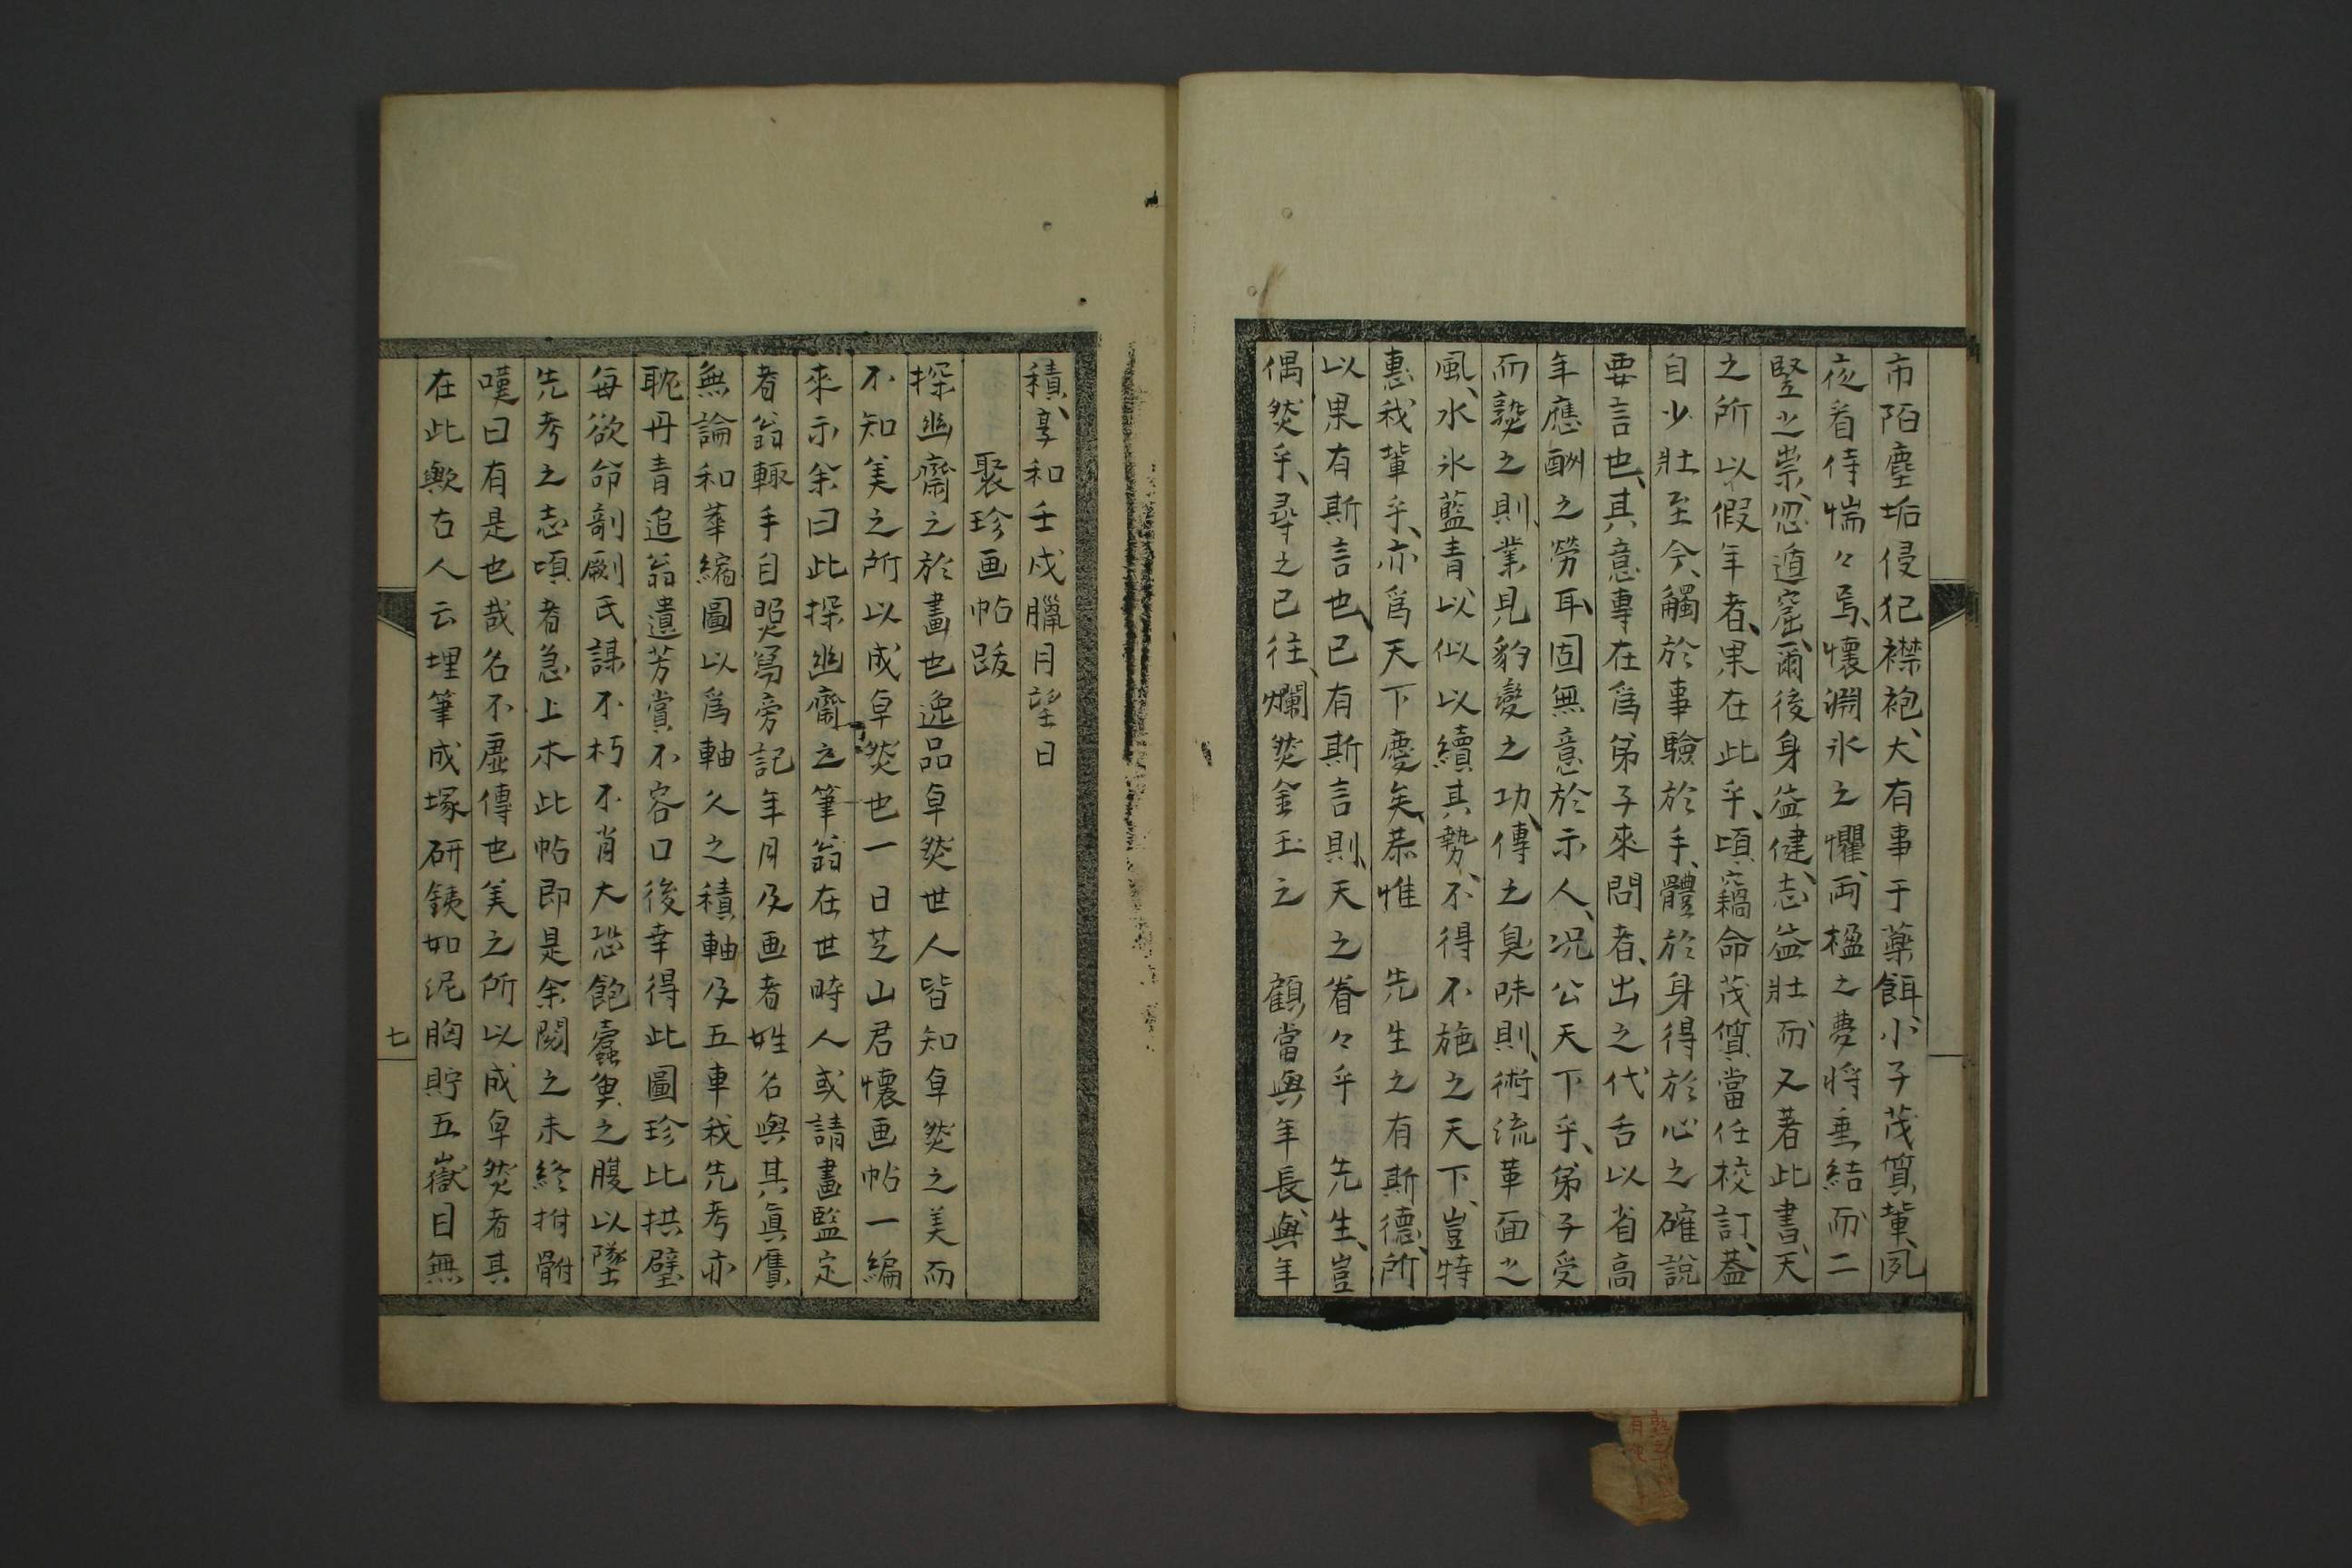 市陌塵垢侵犯襟袍、犬有事于藥餌、小子茂質輩、夙
夜看侍惴々焉、懷淵氷之懼、兩楹之夢將垂結而二
竪之祟、忽遁窟、爾後身益健、志益壯而又著此書、天
之所以假年者、果在此乎、頃竊命茂質當任校訂、蓋
自少壯至今、觸於事驗於手、體於身得於心之確說
要言也、其意專在爲弟子來問者、出之代舌以省高
年應酬之勞耳、固無意於示人、况公天下乎、弟子受
而熟之則、業見豹變之功、傳之臭味則、術流革面之
風、水氷藍青以似以續其勢、不得不施之天下、豈特
惠我輩乎、亦爲天下慶矣、恭惟　先生之有斯德、所
以果有斯言也、已有斯言則、天之眷々乎　先生、豈
偶然乎、尋之已往、爛然金玉之　顧當與年長、與年
積、享和壬戌臘月望日
聚珍画帖跋
探幽齋之於畫也逸品卓然世人皆知卓然之美而
不知美之所以成卓然也一日芝山君懷画帖一編
來示余曰此探幽齋之筆翁在世時人或請畫監定
者翁輙手自照寫旁記年月及画者姓名與其眞贋
無論和華縮圖以爲軸久之積軸及五車我先考亦
耽丹青追翁遺芳賞不容口後幸得此圖珍比拱璧
每欲命剞劂氏謀不朽不肖大恐飽蠹魚之腹以墜
先考之志頃者急上木此帖即是余閱之未終拊髀
嘆曰有是也哉名不虛傳也美之所以成卓然者其
在此歟古人云埋筆成塚研鐵如泥胸貯五嶽目無
七